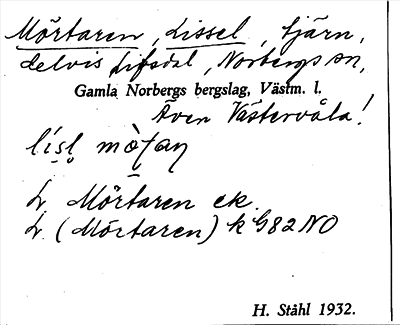 Mörtaren, Lissel, tjärn,
delvis Lifsdal, Norbergs sn,
Gamla Norbergs bergslag, Västm. l.
Även Västervåla!
Mörtaren ek.
(Mörtaren) k G82 NO
H. Ståhl 1932.